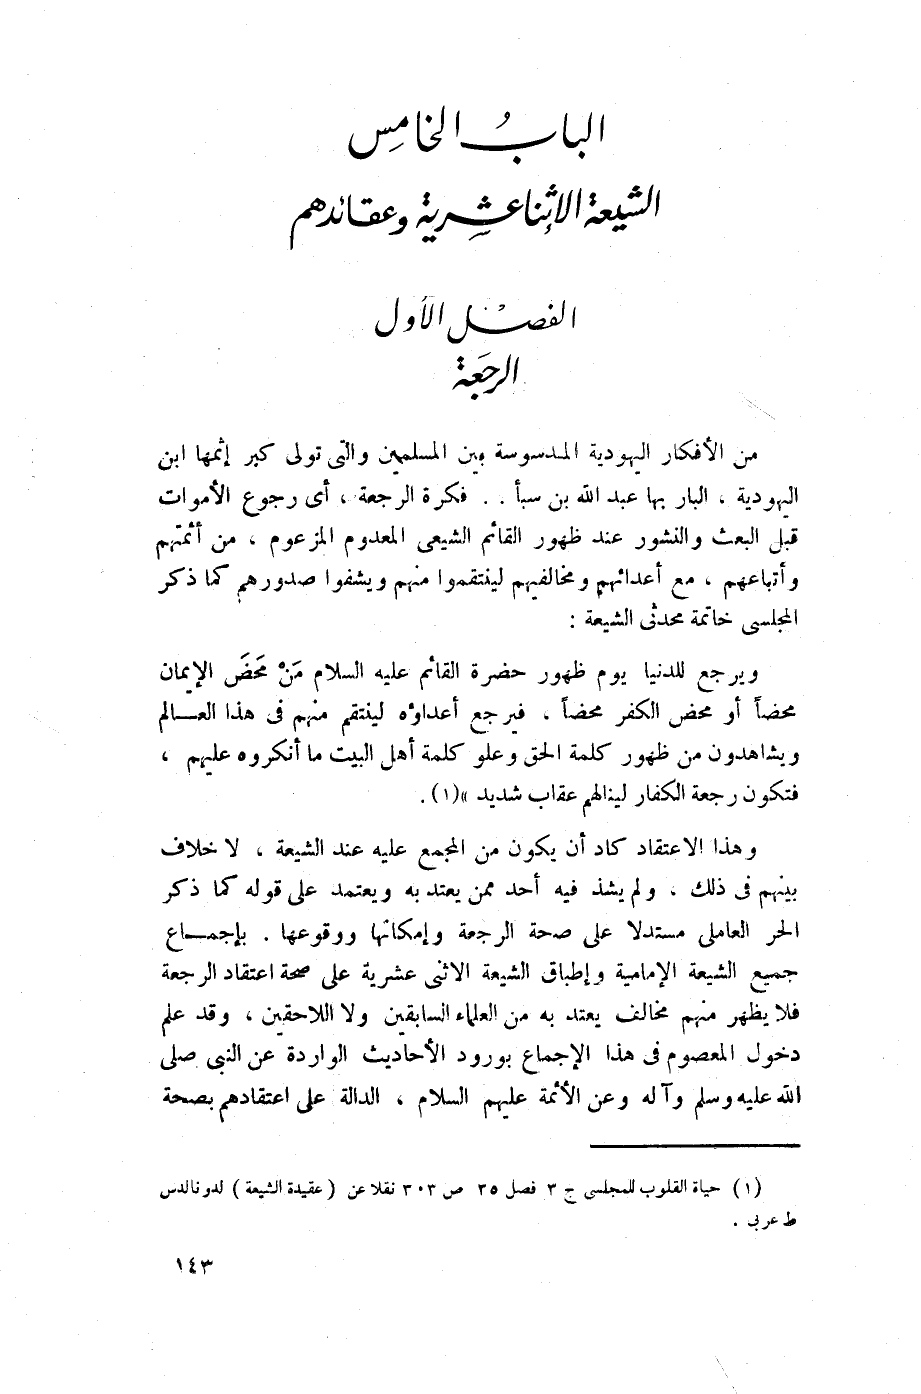 الباب الخامس
الشيعة الاثنا عشرية وعقائدهم
الفصل الأول
الرجعة
من الأفكار اليهودية المدسوسة بين المسلمين والتى تولى كبر إثمها ابن
اليهودية ، البار بها عبد الله بن سبأ . . فكرة الرجعة ، أى رجوع الأموات
قبل البعث والنشور عند ظهور القائم الشيعى المعدوم المزعوم ، من أئمتهم
وأتباعهم ، مع أعدائهم ومخالفيهم لينتقموا منهم ويشفوا صدورهم كما ذكر
المجلسى خاتمة محدثى الشيعة :
ويرجع للدنيا يوم ظهور حضرة القائم عليه السلام مَنْ مَحَضَ الإيمان
محضاً أو محض الكفر محضاً ، فيرجع أعداؤه لينتقم منهم فى هذا العـــالم
ويشاهدون من ظهور كلمة الحق وعلو كلمة أهل البيت ما أنكروه عليهم ،
فتكون رجعة الكفار لينالهم عقاب شديد »(١).
وهذا الاعتقاد كاد أن يكون من المجمع عليه عند الشيعة ، لا خلاف
بينهم فى ذلك ، ولم يشذ فيه أحد ممن يعتد به ويعتمد على قوله كما ذكر
الحر العاملى مستدلا على صحة الرجعة وإمكانها ووقوعها . بإجمـــاع
جميع الشيعة الإمامية وإطباق الشيعة الاثنى عشرية على صحة اعتقاد الرجعة
فلا يظهر منهم مخالف يعتد به من العلماء السابقين ولا اللاحقين ، وقد علم
دخول المعصوم فى هذا الإجماع بورود الأحاديث الواردة عن النبى صلى
الله عليه وسلم وآله وعن الأئمة عليهم السلام ، الدالة على اعتقادهم بصحة
(١) حياة القلوب للمجلسى ج ٣ فصل ٣٥ ص ٣٠٣ نقلا عن ( عقيدة الشيعة ) لدونالدس
ط عربى .
١٤٣